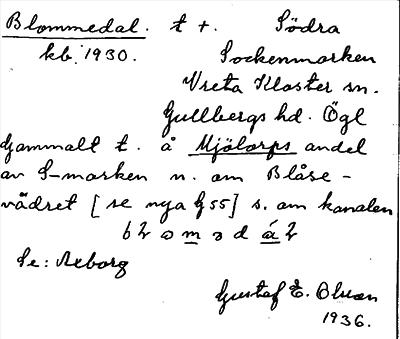 Blommedal. t +. Södra
kb. 1930. Sockenmarken
Vreta Kloster sn.
Gullbergs hd. Ögl
Gammalt t. å Mjölorps andel
av S-marken n. om Blåse-
vädret [se nya G 55] s. om kanalen
Se: Axborg
Gustaf E.
1936.